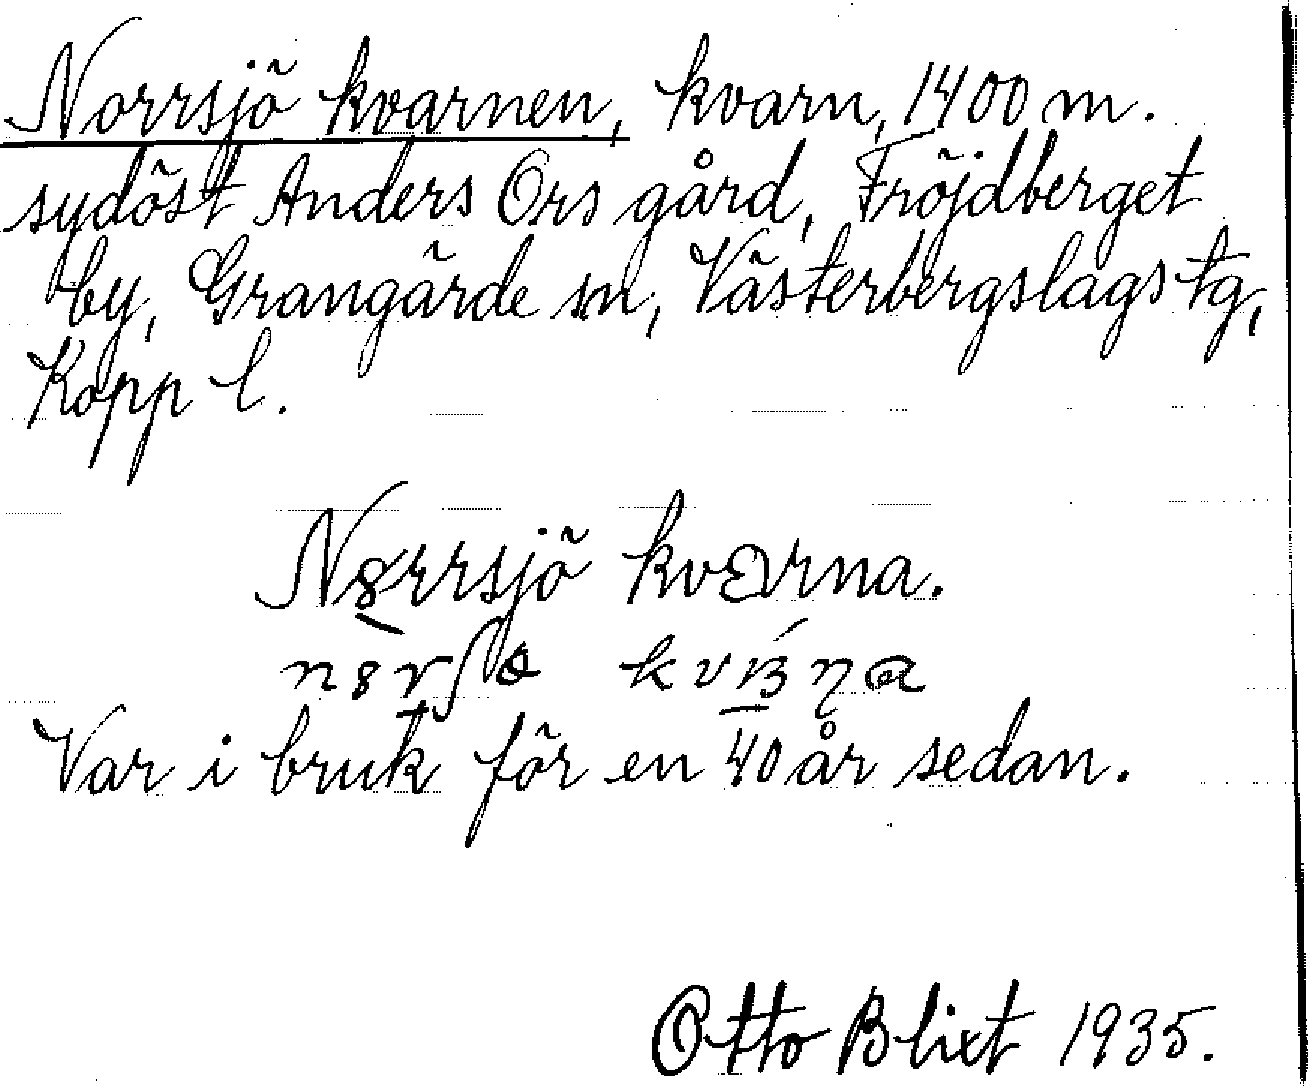 Norrsjö kvarnen, kvarn, 1400 m.
sydöst Anders Ors gård, Fröjdberget
by, Grangärde sn, Västerbergslags tg,
Kopp l.
N8rrsjö kværna.
Var i bruk för en 40 år sedan.
Otto Blixt 1935.